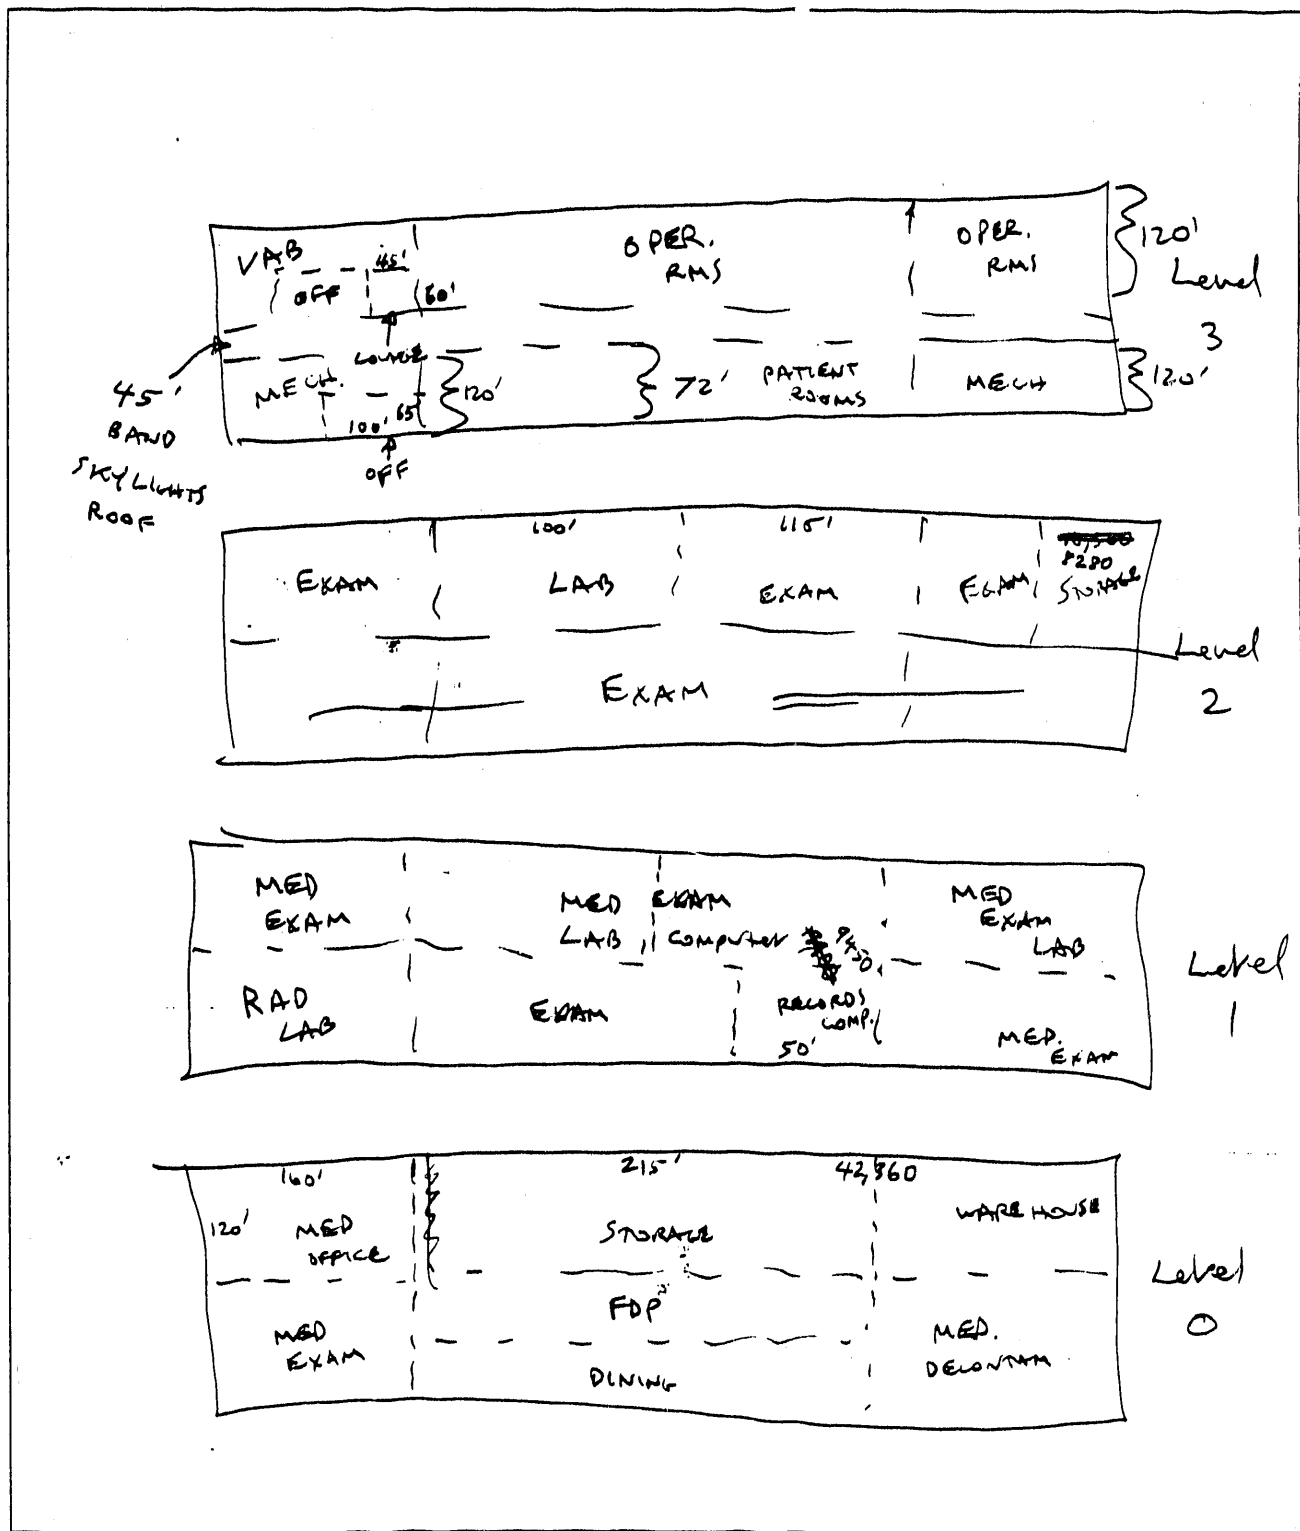 VAB
45'
OFF
60'
OPER.
RMS
OPER.
RMS
120'
Level
3
LOUNGE
MECH.
120'
72'
PATIENT
ROOMS
MECH
120'
100'
65
OFF
45'
BAND
SKYLIGHTS
ROOF
100'
115'
8280
EXAM
LAB
EXAM
EXAM
STORAGE
EXAM
Level
2
MED
EXAM
MED
LAB
EXAM
COMPUTER
9450
MED
EXAM
LAB
RAD
LAB
EXAM
RECORDS
COMP.
50'
MED.
EXAM
Level
1
160'
215'
42,360
120'
MED
OFFICE
STORAGE
WAREHOUSE
FDP
MED
EXAM
DINING
MED.
DECONTAM
Level
0